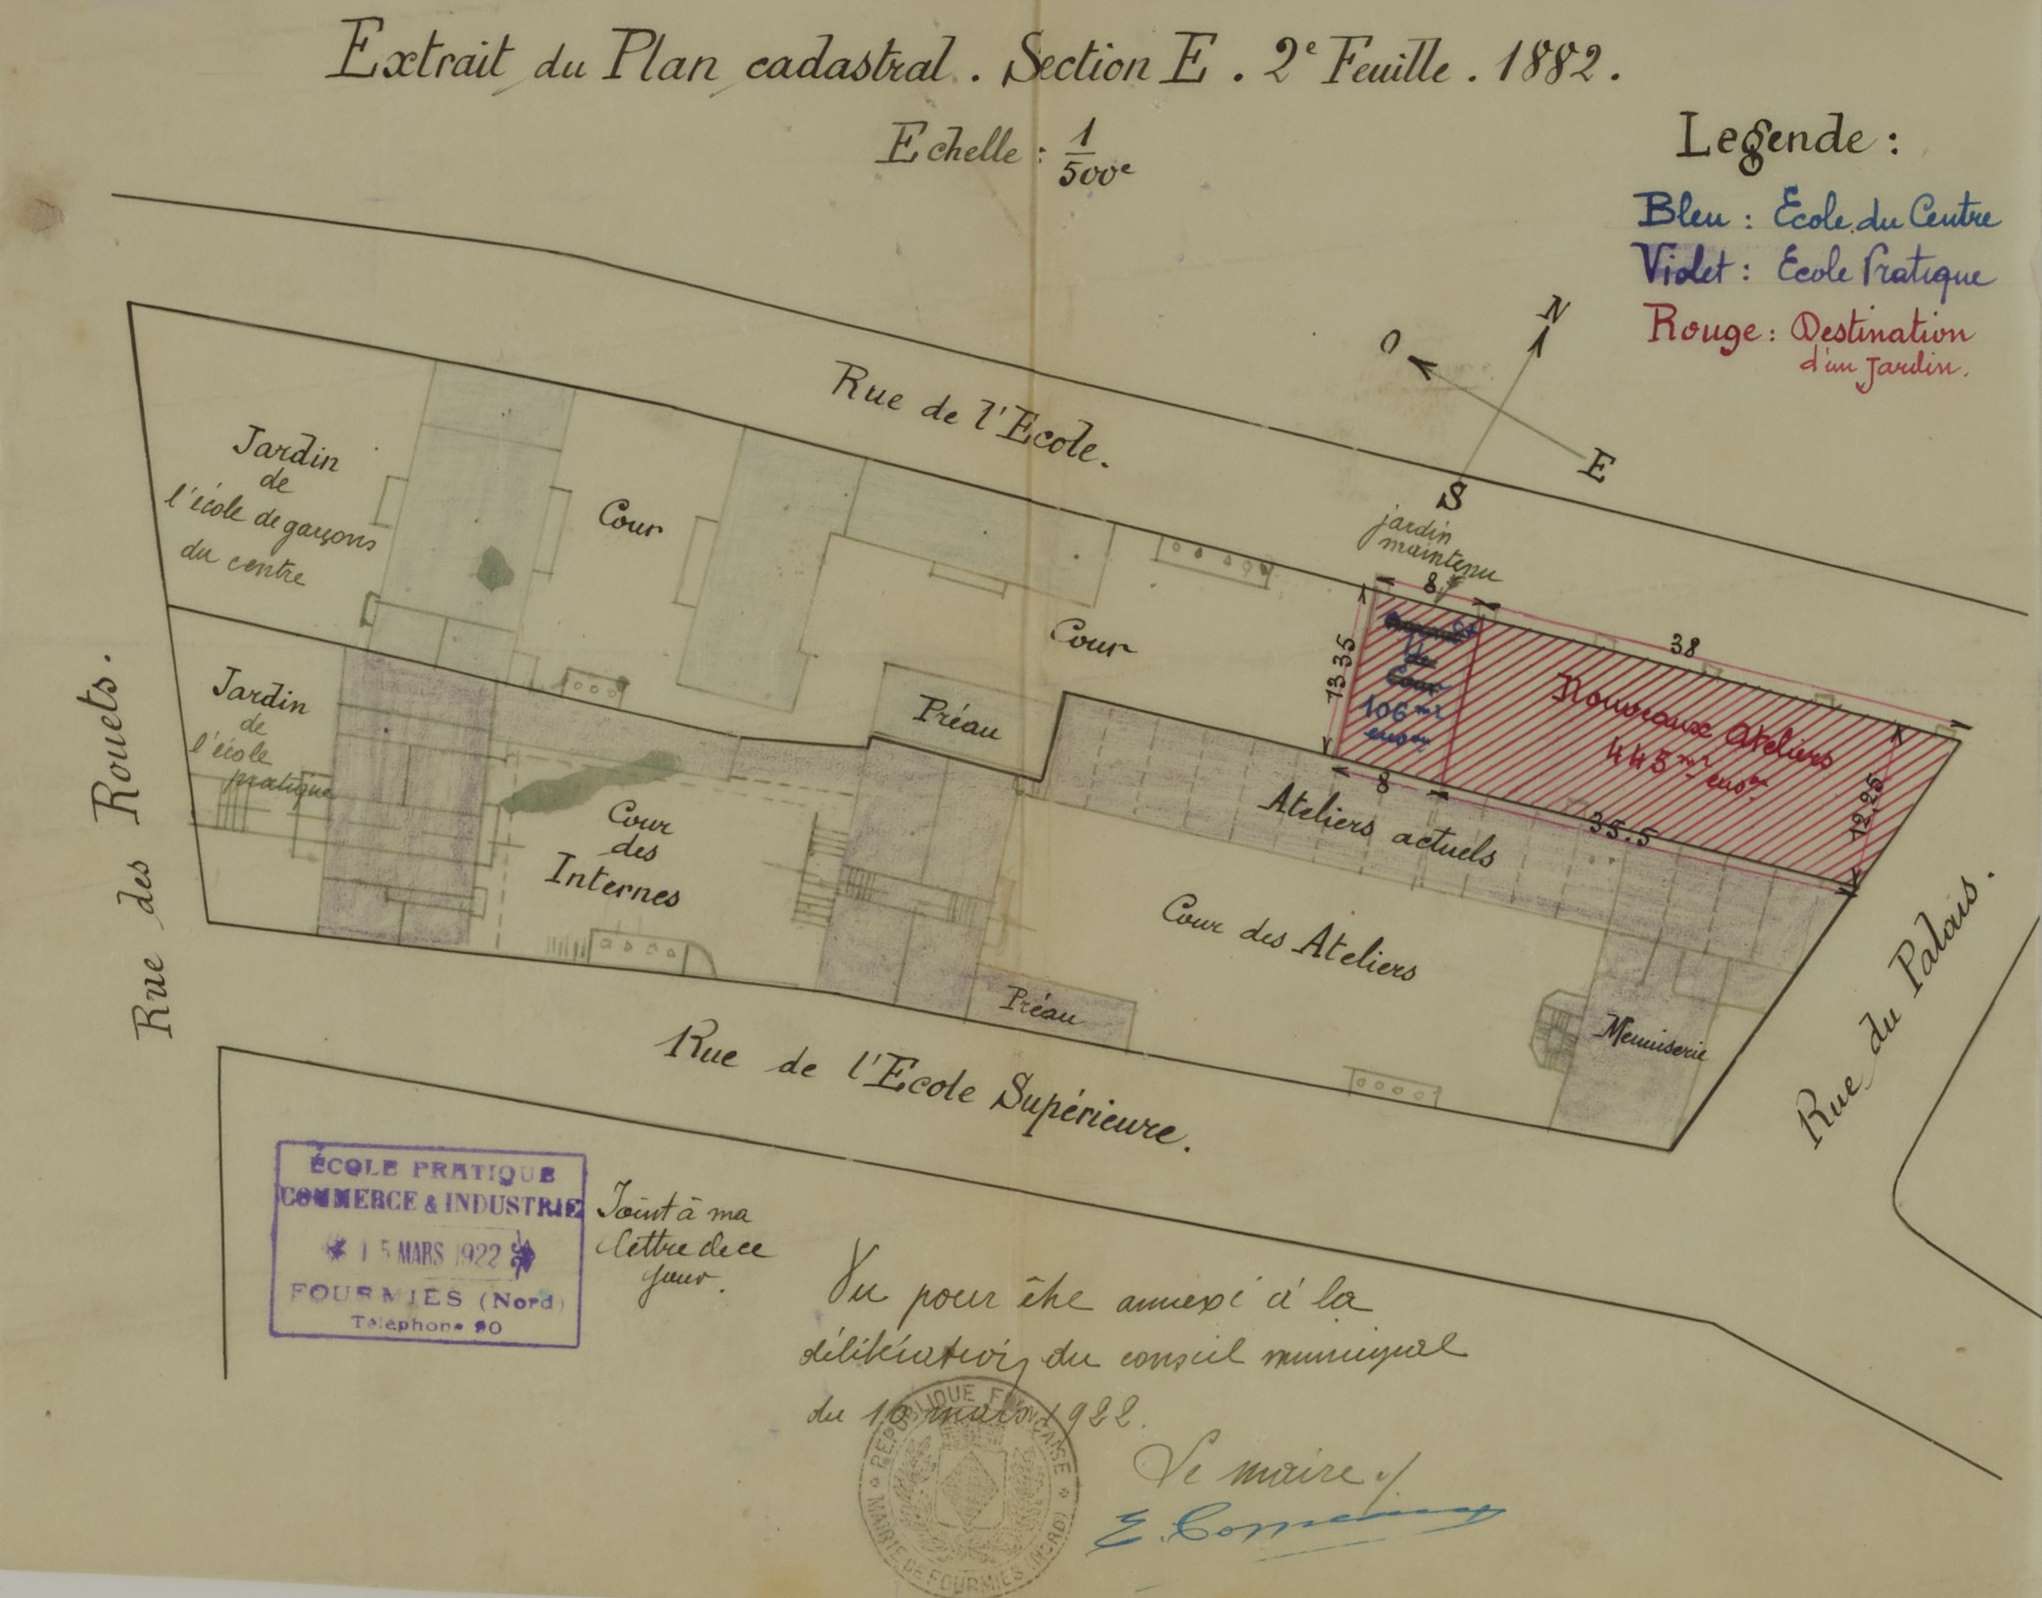 Extrait du Plan cadastral. Section E. 2e Feuille. 1882.
Echelle : 1/500e
Legende :
Bleu : Ecole du Centre
Violet : Ecole Pratique
Rouge : Destination
d'un Jardin.
N
O
E
S
Rue de l'Ecole.
jardin
maintenu
Jardin
de
l'école de garçons
du centre
Cour
Cour
8
38
13.35
de
Cour
106 m2
Nouveaux Ateliers
443 m2
12,25
8
35.5
Préau
Jardin
de
l'école
pratique
Ateliers actuels
Cour
des
Internes
Cour des Ateliers
Préau
Menuiserie
Rue des Rouets.
Rue du Palais.
Rue de l'Ecole Supérieure.
ÉCOLE PRATIQUE
COMMERCE & INDUSTRIE
15 MARS 1922
FOURMIES (Nord)
Téléphone 90
Joint à ma
lettre de ce
jour.
Vu pour être annexé à la
délibération du conseil municipal
du 10 mars 1922.
RÉPUBLIQUE FRANÇAISE
MAIRIE DE FOURMIES (NORD)
Le maire